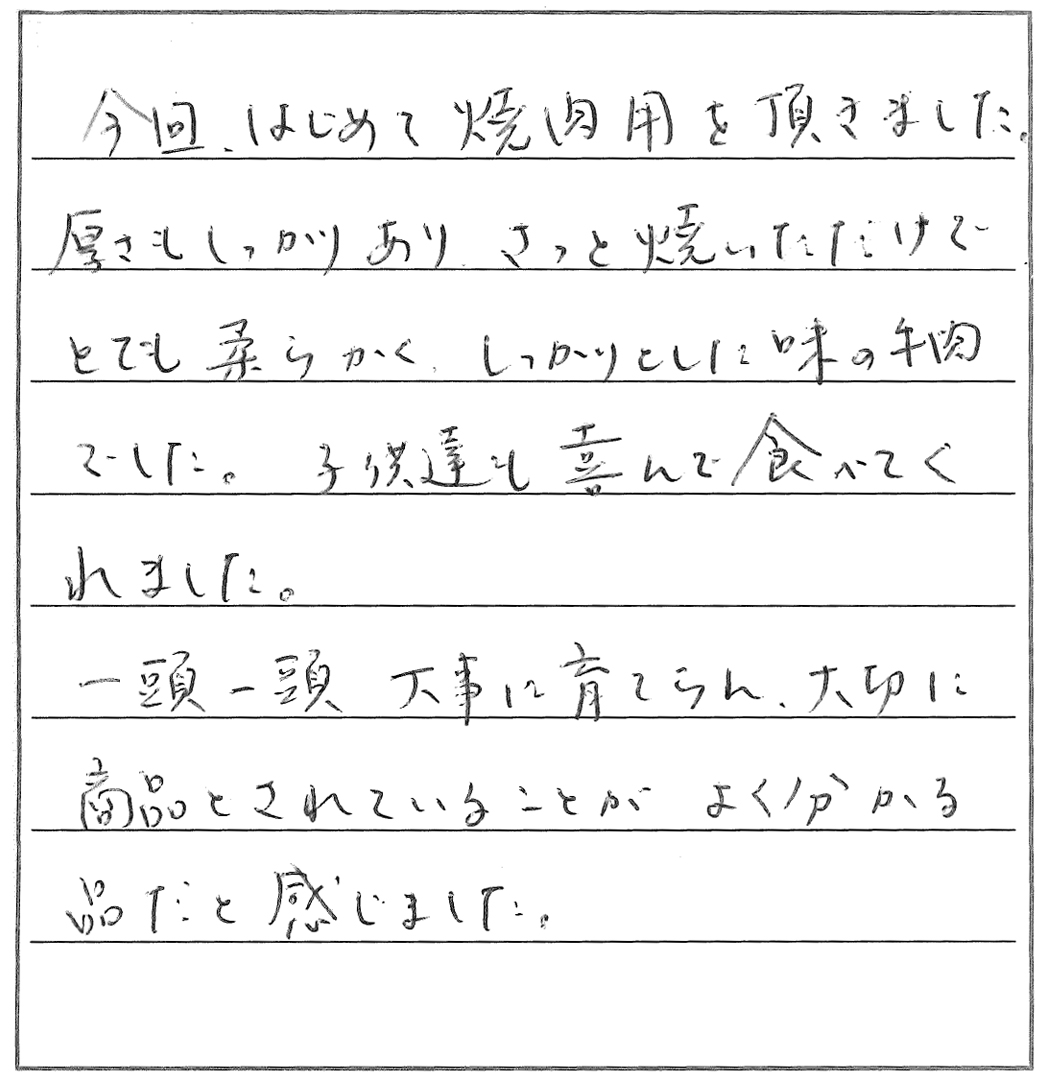 今回、はじめて焼肉用を頂きました。
厚さもしっかりあり、さっと焼いただけで
とても柔らかく、しっかりとした味の牛肉
でした。子供達も喜んで食べてく
れました。
一頭一頭 大事に育てられ、大切に
商品とされていることが よく分かる
品だと感じました。